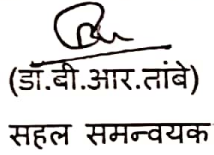 (डा.बी.आर.तांबे)
सहल समन्वयक